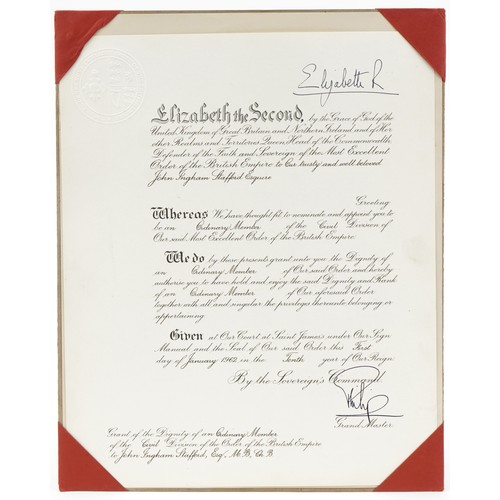 Elizabeth R
Elizabeth the Second, by the Grace of God of the
United Kingdom of Great Britain and Northern Ireland and of Her
other Realms and Territories Queen, Head of the Commonwealth,
Defender of the Faith and Sovereign of the Most Excellent
Order of the British Empire to Our trusty and well beloved
John Ingham Stafford Esquire
Greeting
Whereas We have thought fit to nominate and appoint you to
be an Ordinary Member of the Civil Division of
Our said Most Excellent Order of the British Empire
We do by these presents grant unto you the Dignity of
an Ordinary Member of Our said Order and hereby
authorise you to have hold and enjoy the said Dignity and Rank
of an Ordinary Member of Our aforesaid Order
together with all and singular the privileges thereunto belonging or
appertaining.
Given at Our Court at Saint James's under Our Sign
Manual and the Seal of Our said Order this First
day of January 1962 in the Tenth year of Our Reign.
By the Sovereign's Command.
Philip
Grand Master.
Grant of the Dignity of an Ordinary Member
of the Civil Division of the Order of the British Empire
to John Ingham Stafford, Esq., M.B., Ch.B